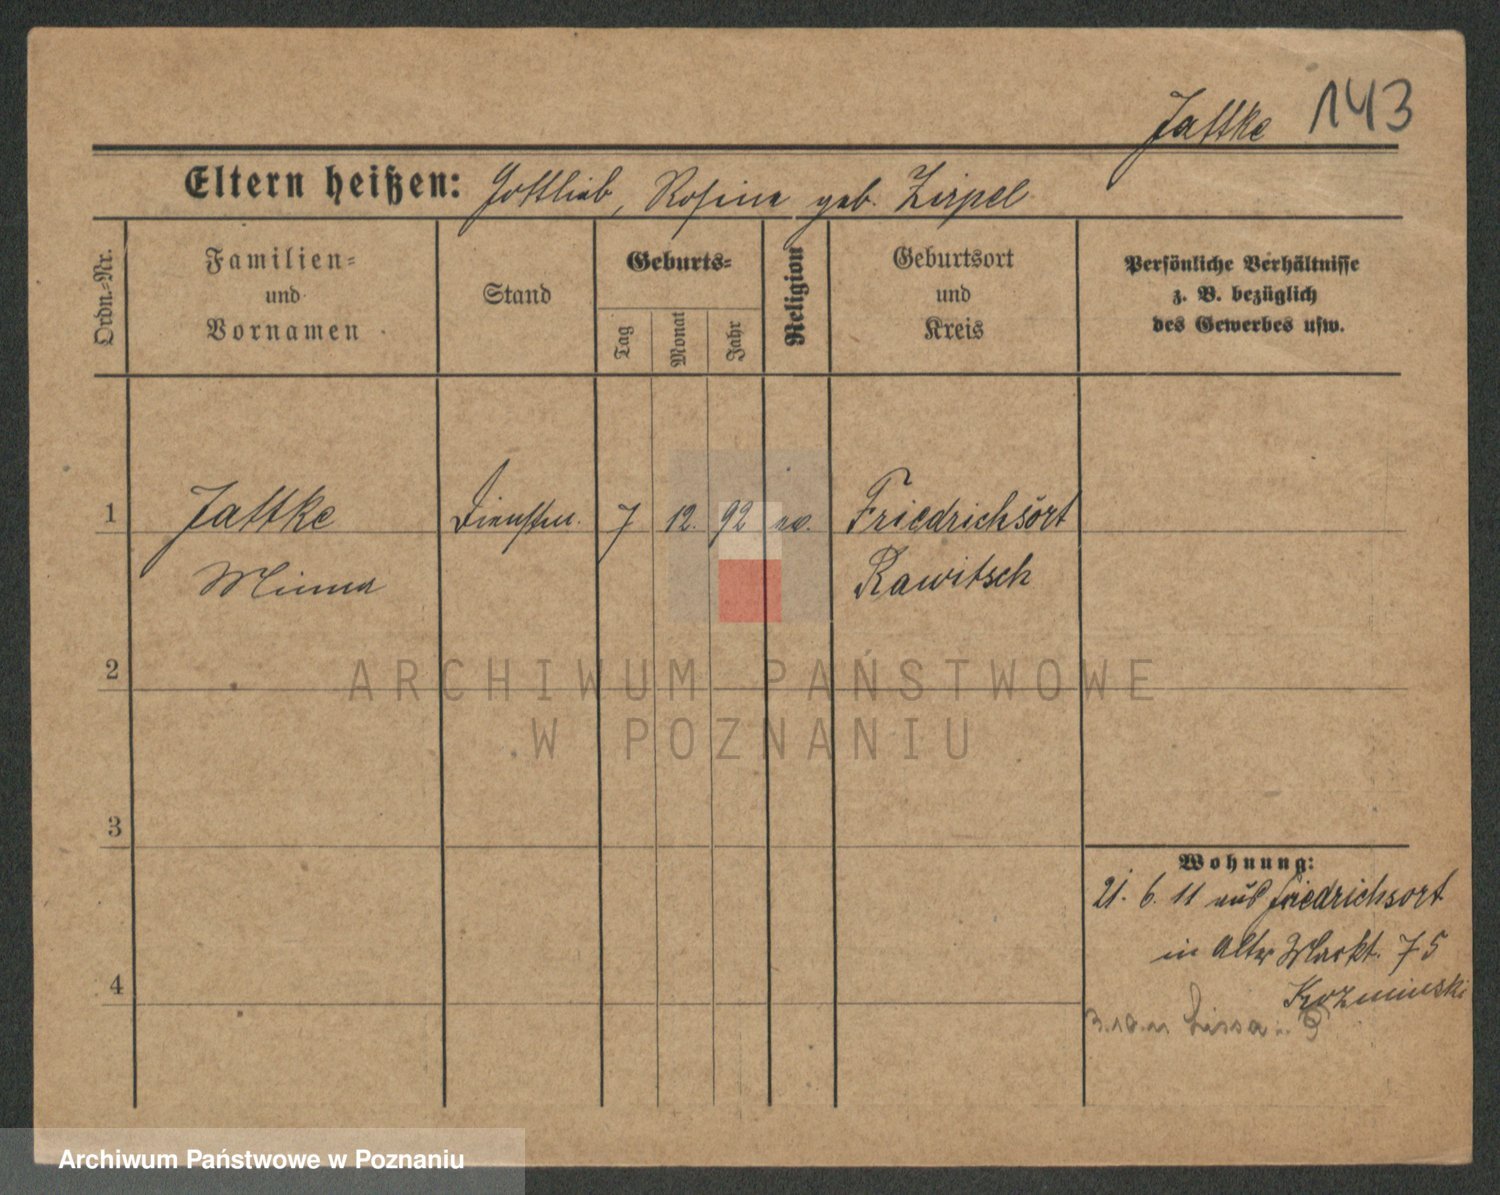 Jattke 143
Eltern heißen: Gottlieb, Rosine geb. Zirpel
Ordn.-Nr.
Familien-
und
Vornamen
Stand
Geburts-
Tag
Monat
Jahr
Religion
Geburtsort
und
Kreis
Persönliche Verhältnisse
z. B. bezüglich
des Gewerbes usw.
1 Jattke Dienstm. 7 12. 92 ev. Friedrichsort
Minna Rawitsch
2
ARCHIWUM PAŃSTWOWE
W POZNANIU
3
Wohnung:
21. 6. 11 aus Friedrichsort
in Alter Markt. 75
Kozminski
4
3.10.11 Lissa i. P
Archiwum Państwowe w Poznaniu